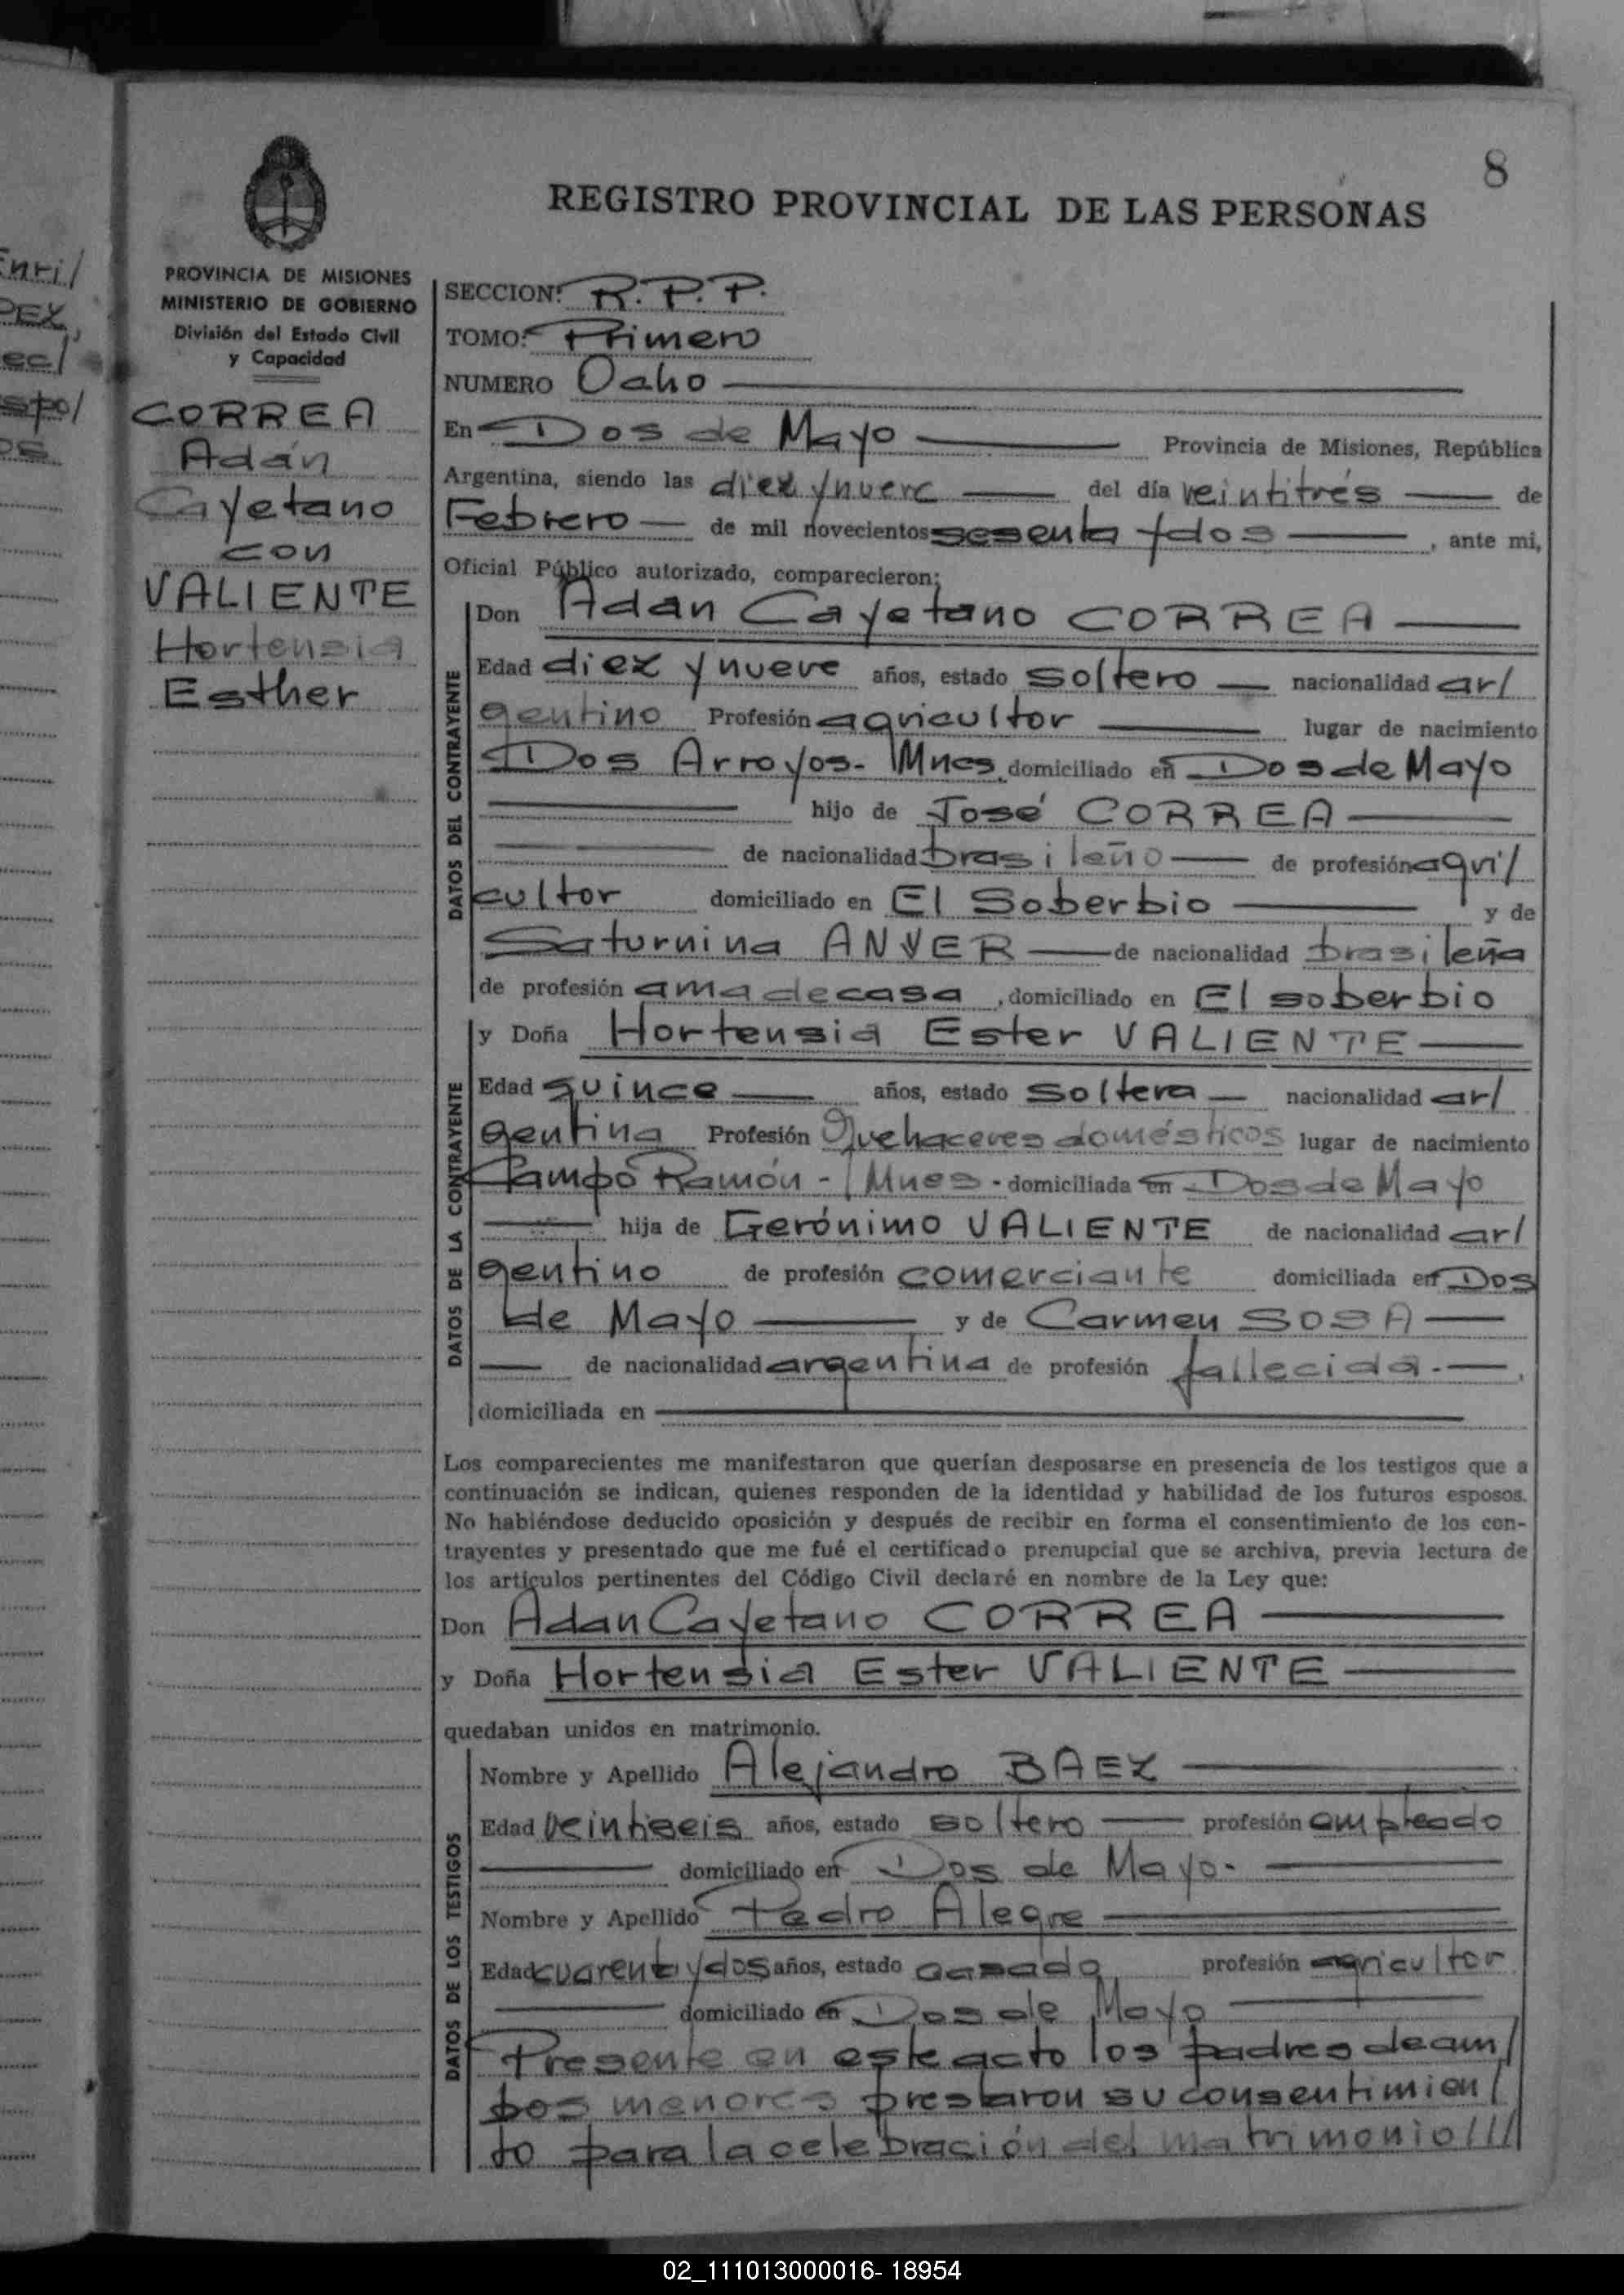 8
REGISTRO PROVINCIAL DE LAS PERSONAS
PROVINCIA DE MISIONES
MINISTERIO DE GOBIERNO
División del Estado Civil
y Capacidad
CORREA
Adán
Cayetano
con
VALIENTE
Hortensia
Esther
SECCION: R.P.P.
TOMO: Primero
NUMERO Ocho
En Dos de Mayo Provincia de Misiones, República
Argentina, siendo las diez y nueve del día veintitrés de
Febrero de mil novecientos sesenta y dos, ante mi,
Oficial Público autorizado, comparecieron;
DATOS DEL CONTRAYENTE
Don Adan Cayetano CORREA
Edad diez y nueve años, estado soltero nacionalidad ar/
gentino Profesión agricultor lugar de nacimiento
Dos Arroyos- Mnes domiciliado en Dos de Mayo
hijo de José CORREA
de nacionalidad brasileño de profesión agri/
cultor domiciliado en El Soberbio y de
Saturnina ANVER de nacionalidad brasileña
de profesión ama de casa, domiciliado en El soberbio
DATOS DE LA CONTRAYENTE
y Doña Hortensia Ester VALIENTE
Edad quince años, estado soltera nacionalidad ar/
gentina Profesión Quehaceres domésticos lugar de nacimiento
Campo Ramón - Mnes - domiciliada en Dos de Mayo
hija de Gerónimo VALIENTE de nacionalidad ar/
gentino de profesión comerciante domiciliada en Dos
de Mayo y de Carmen SOSA
de nacionalidad argentina de profesión fallecida.-
domiciliada en
Los comparecientes me manifestaron que querían desposarse en presencia de los testigos que a
continuación se indican, quienes responden de la identidad y habilidad de los futuros esposos.
No habiéndose deducido oposición y después de recibir en forma el consentimiento de los con-
trayentes y presentado que me fué el certificado prenupcial que se archiva, previa lectura de
los articulos pertinentes del Código Civil declaré en nombre de la Ley que:
Don Adan Cayetano CORREA
y Doña Hortensia Ester VALIENTE
quedaban unidos en matrimonio.
DATOS DE LOS TESTIGOS
Nombre y Apellido Alejandro BAEZ
Edad veintiseis años, estado soltero profesión empleado
domiciliado en Dos de Mayo-
Nombre y Apellido Pedro Alegre
Edad cuarenta y dos años, estado casado profesión agricultor
domiciliado en Dos de Mayo
Presente en este acto los padres de am/
bos menores prestaron su consentimien/
to para la celebración del matrimonio///
02_111013000016-18954